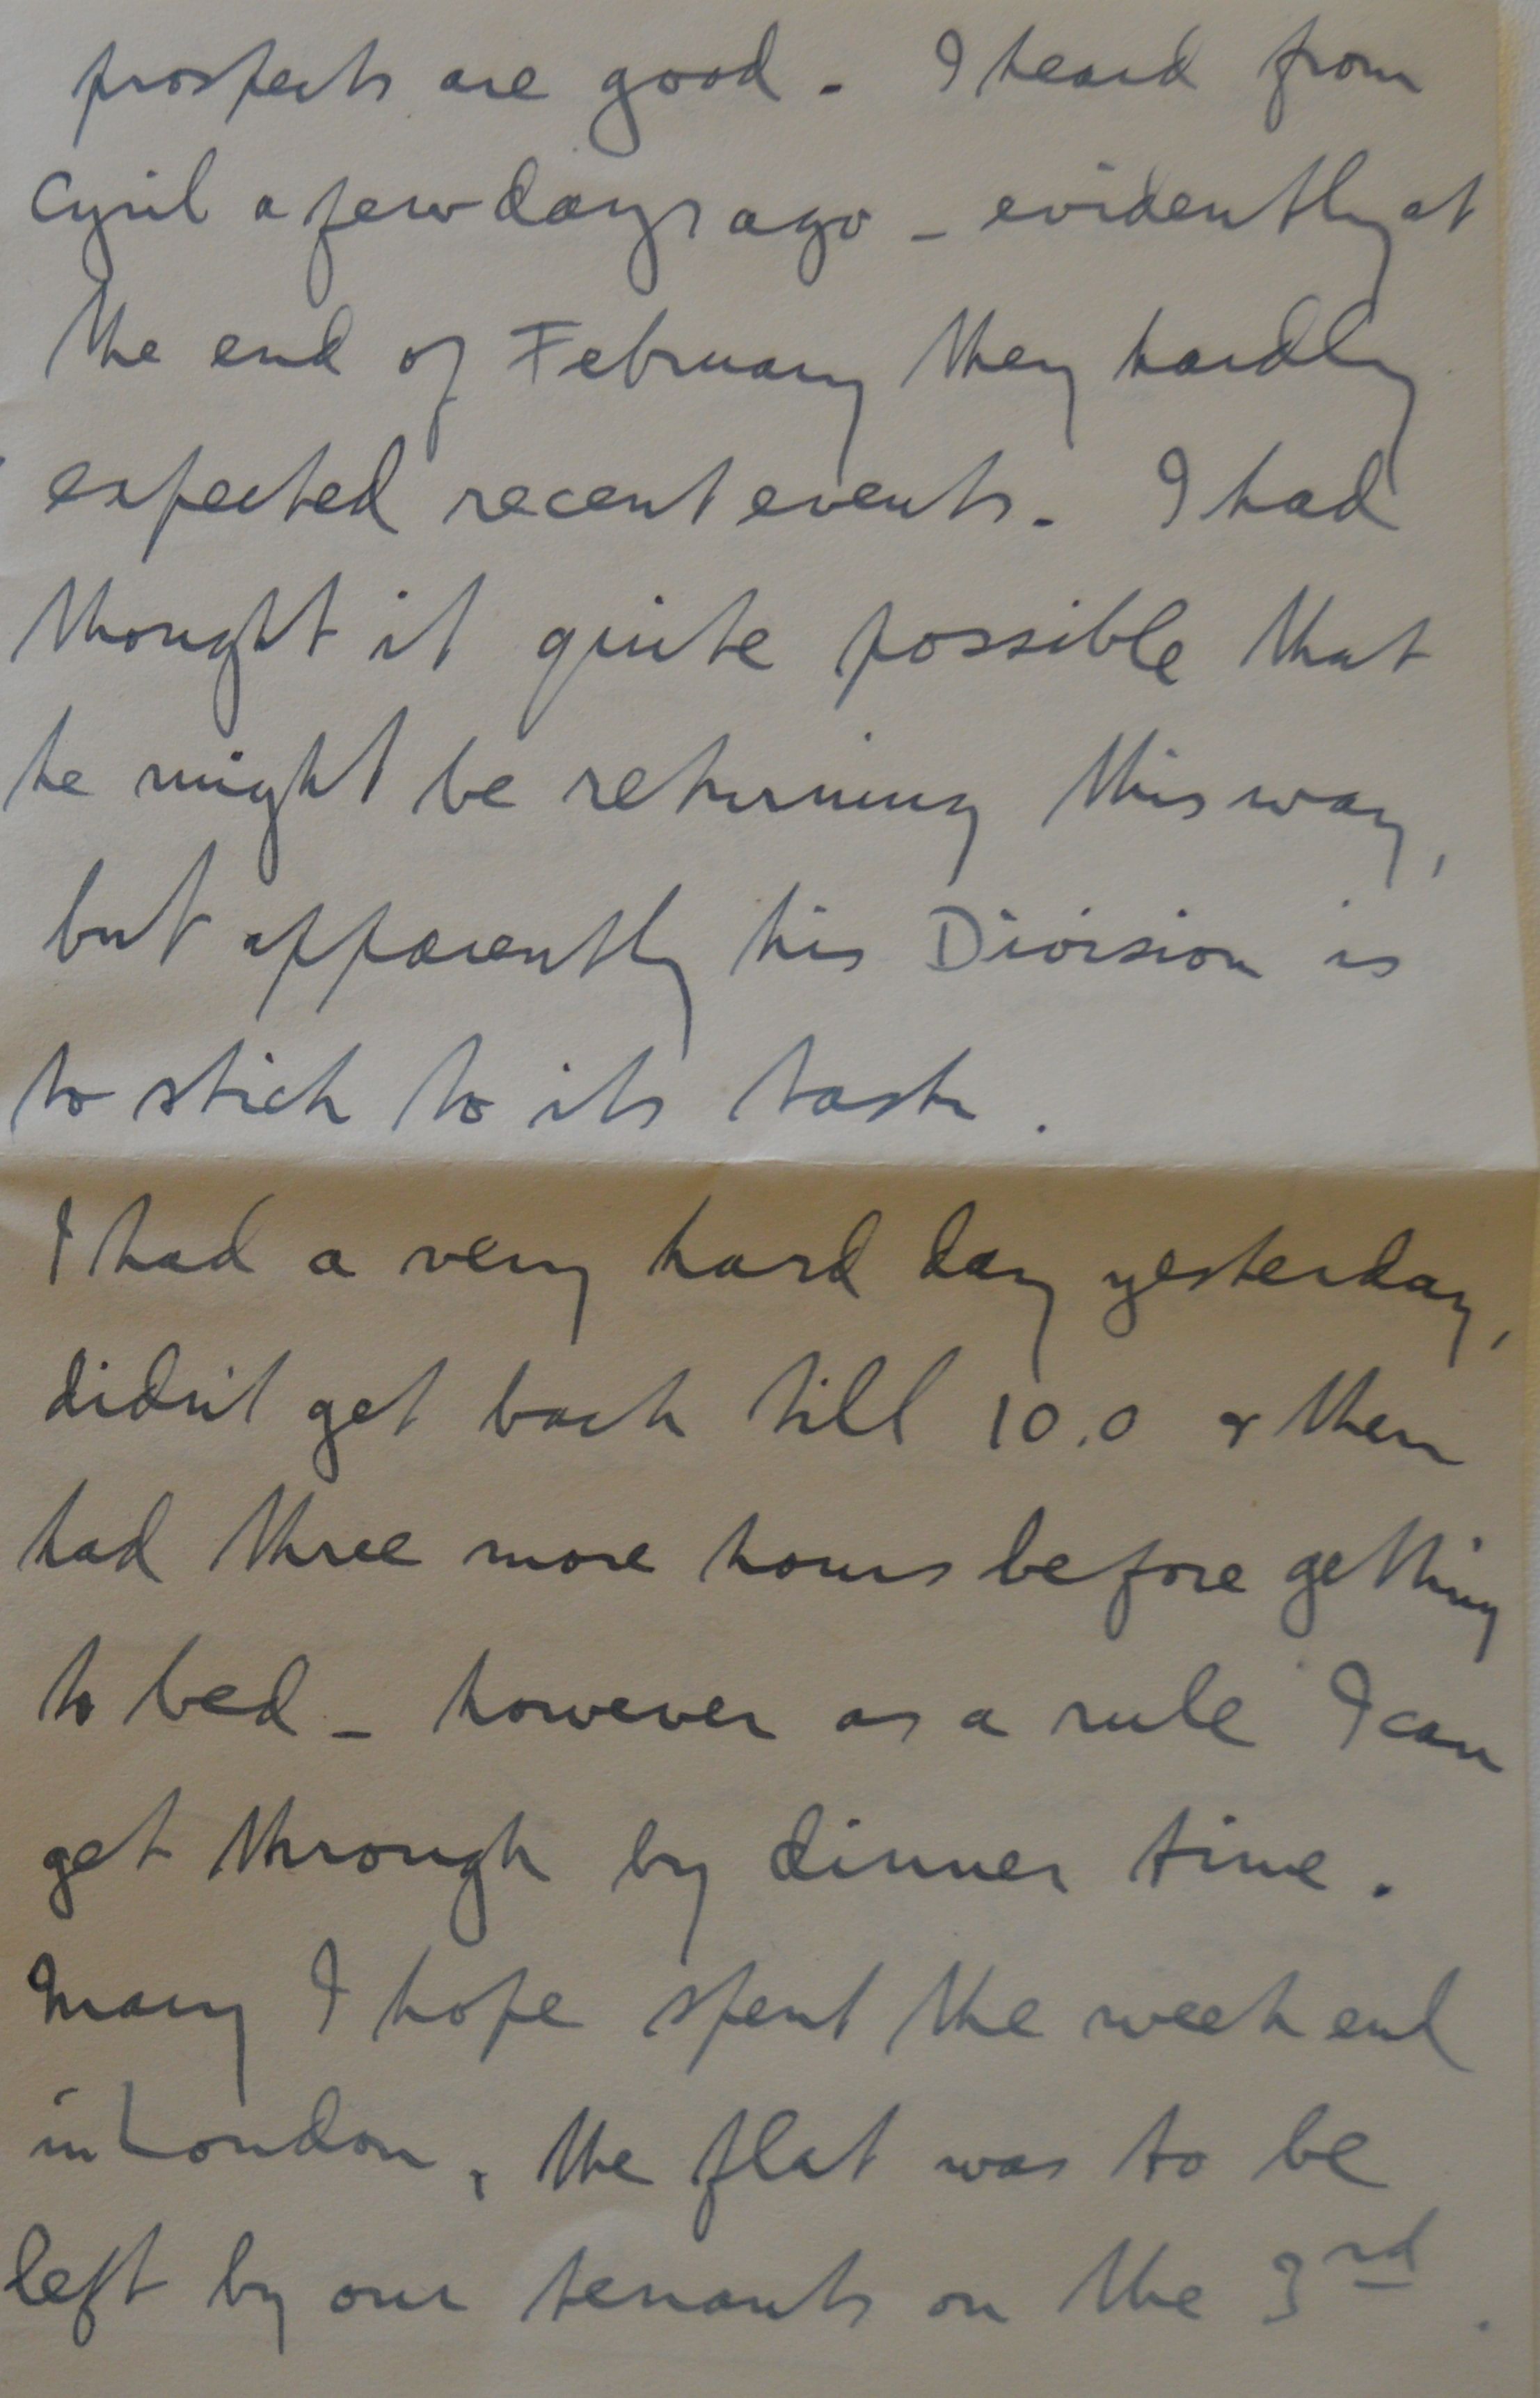 prospects are good. I heard from
Cyril a few days ago - evidently at
the end of February they hardly
expected recent events. I had
thought it quite possible that
he might be returning this way,
but apparently his Division is
to stick to its task.
I had a very hard day yesterday,
didn't get back till 10.0 & then
had three more hours before getting
to bed - however as a rule I can
get through by dinner time.
Mary I hope spent the week end
in London, the flat was to be
left by our tenants on the 3rd.